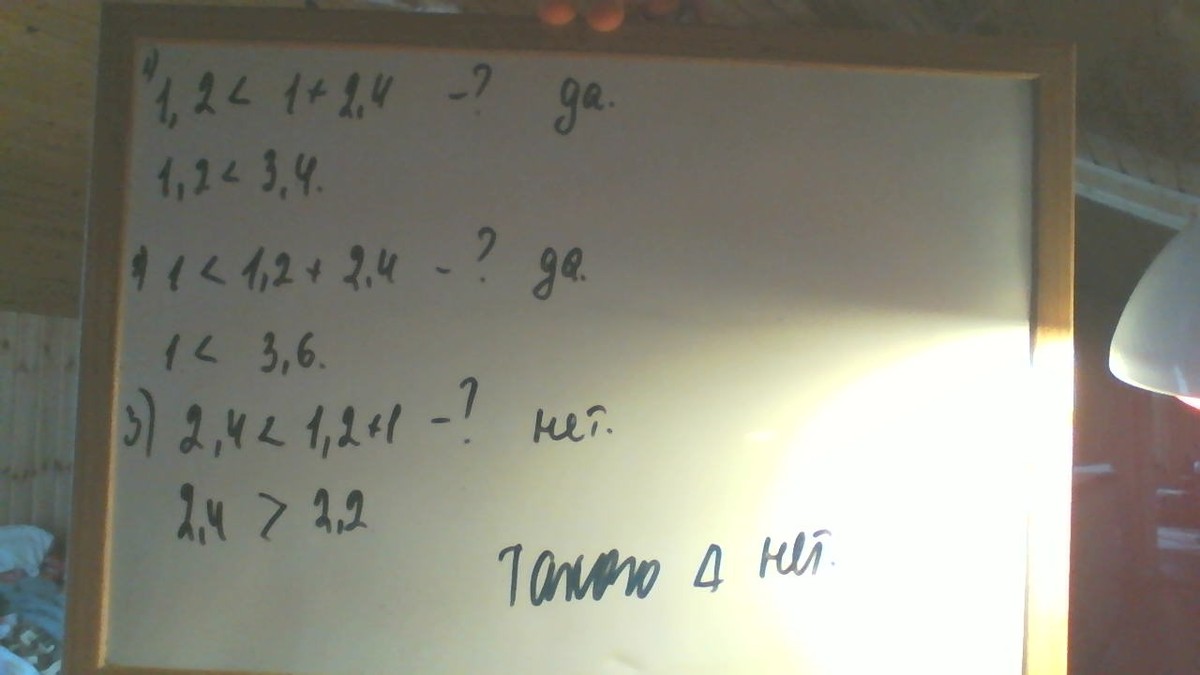 1) 1,2 < 1 + 2,4 - ? да.
1,2 < 3,4.
2) 1 < 1,2 + 2,4 - ? да.
1 < 3,6.
3) 2,4 < 1,2+1 - ? нет.
2,4 > 2,2
Такого Δ нет.